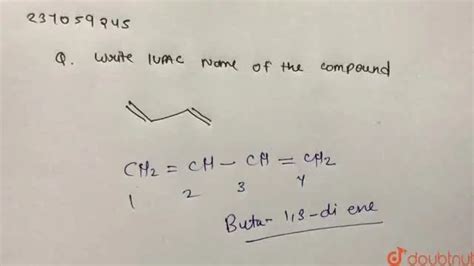 237059245
Q. Write IUPAC Name of the compound
CH2 = CH - CH = CH2
1 2 3 4
Buta-1,3-di ene
doubtnut